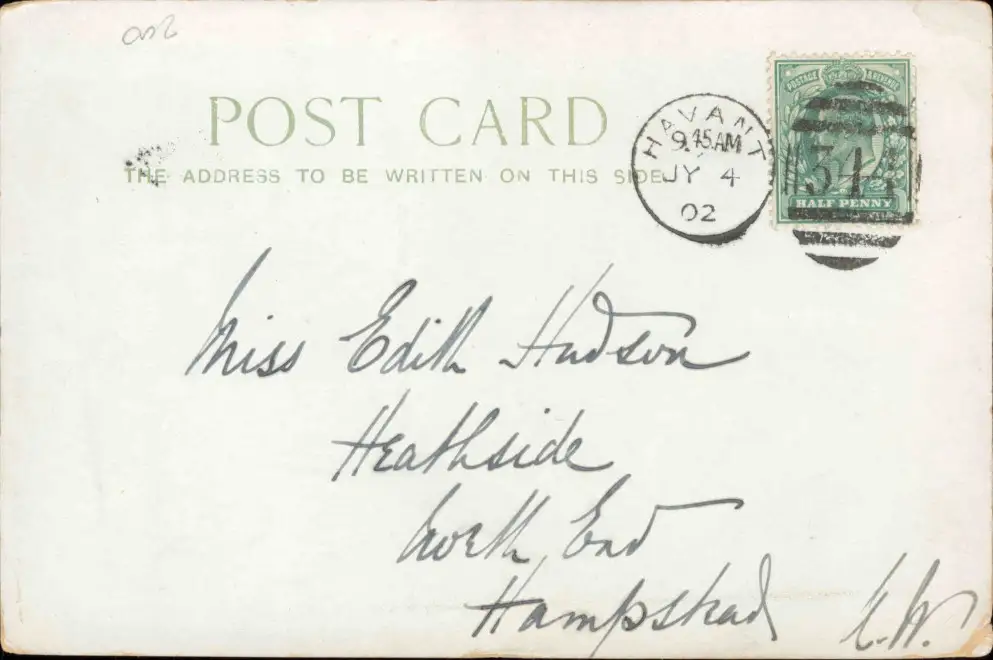 POST CARD
THE ADDRESS TO BE WRITTEN ON THIS SIDE
HAVANT
9.45AM
JY 4
02
POSTAGE & REVENUE
344
HALF PENNY
Miss Edith Hudson
Heathside
North End
Hampstead
N.W.